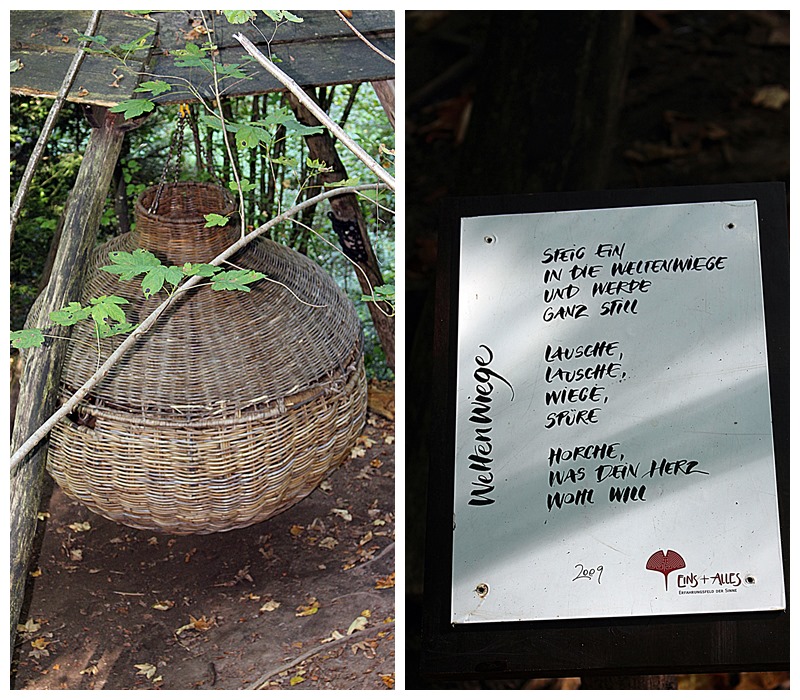 WeltenWiege
STEIG EIN
IN DIE WELTENWIEGE
UND WERDE
GANZ STILL
LAUSCHE,
LAUSCHE,
WIEGE,
SPÜRE
HORCHE,
WAS DEIN HERZ
WOHL WILL
2009
EINS+ALLES
ERFAHRUNGSFELD DER SINNE